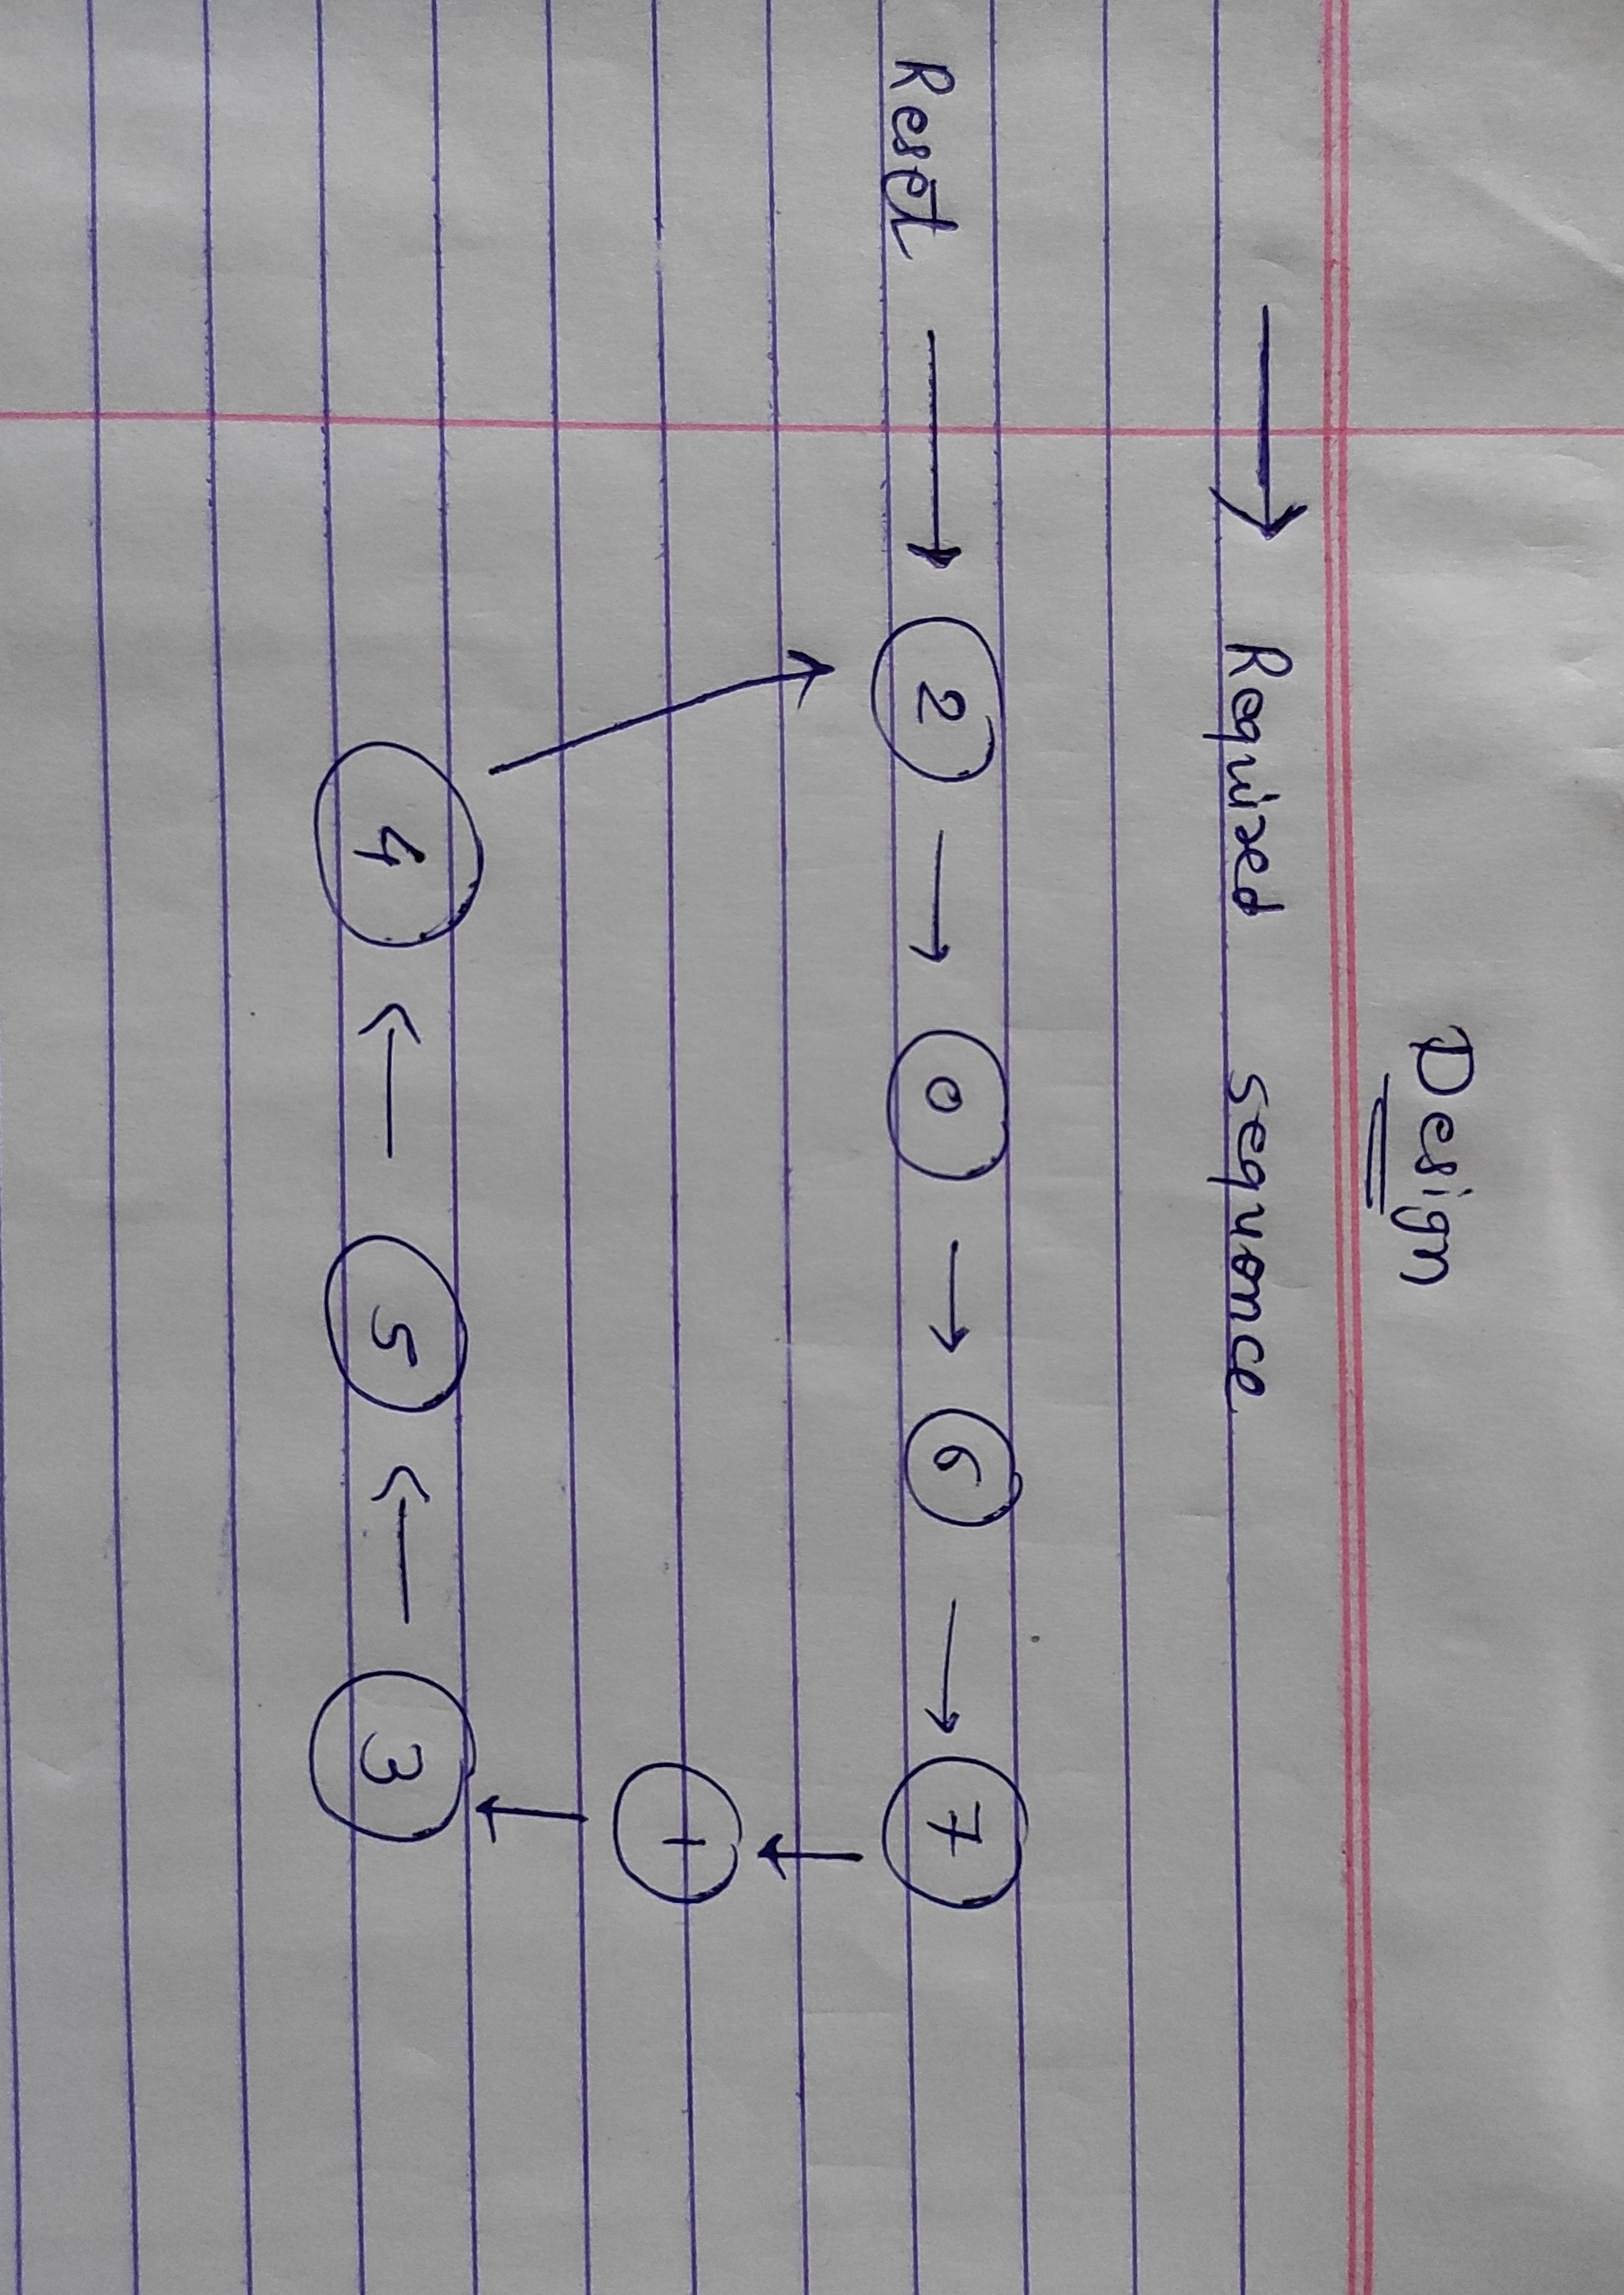 Design
→ Required sequence
Reset → 2 → 0 → 6 → 7
1
4 ← 5 ← 3